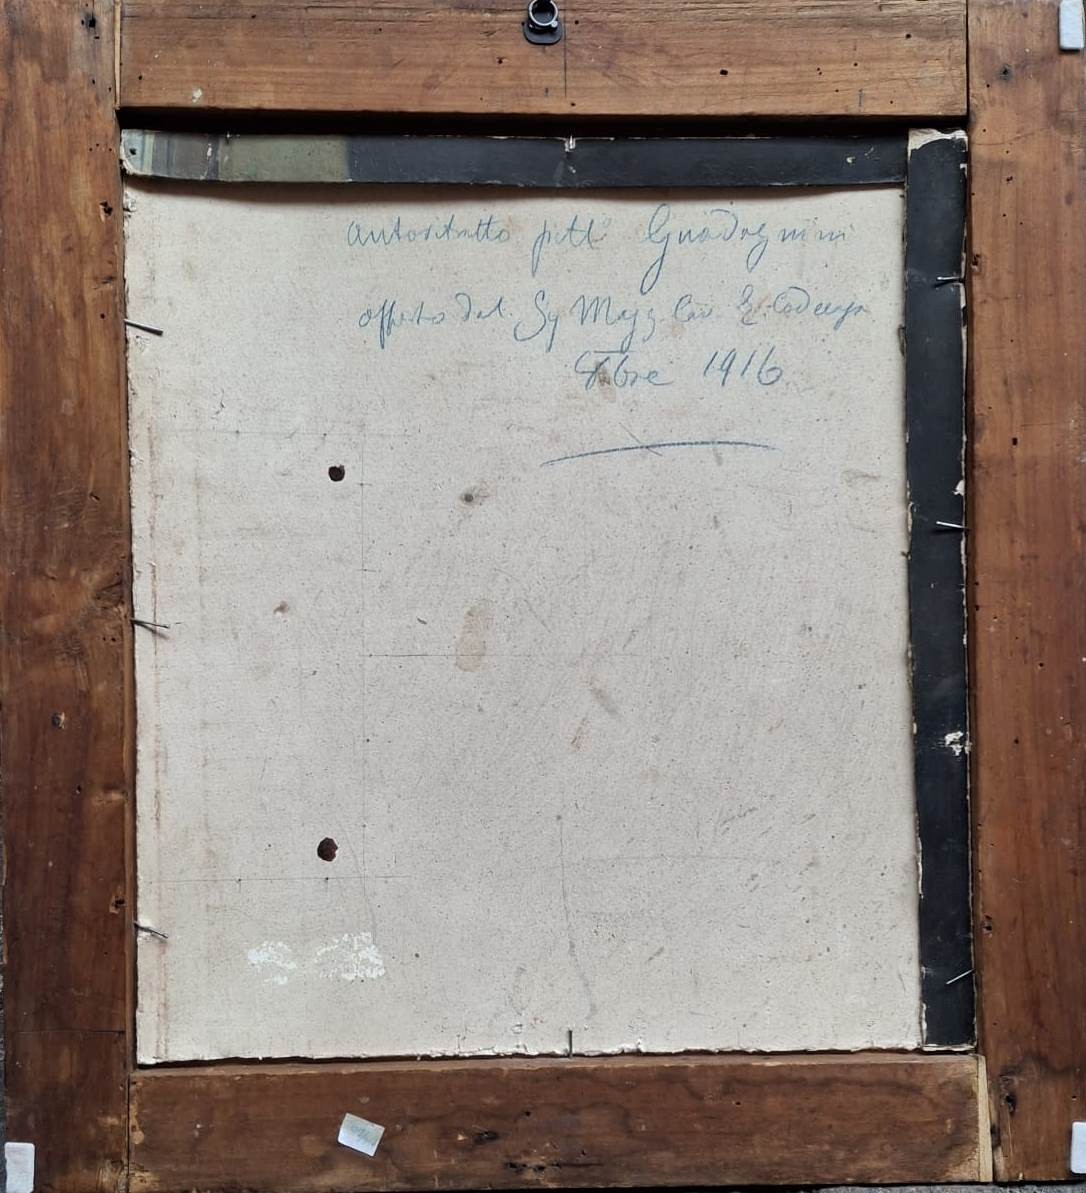 autoritratto pitt.e Guadagnini
offerto dal Sg Magg Cav.
8bre 1916